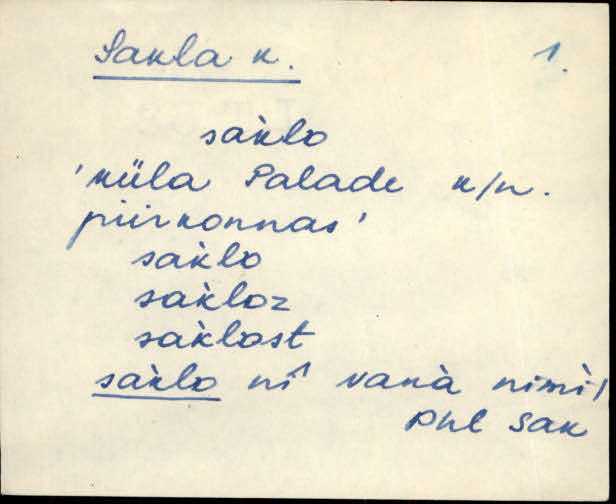 Sakla k. 1.
sak̀lo
'küla Palade k/n.
piirkonnas'
sak̀lo
sak̀loz
sak̀lost
sak̀lo nî vanà nimì/
Phl Sak